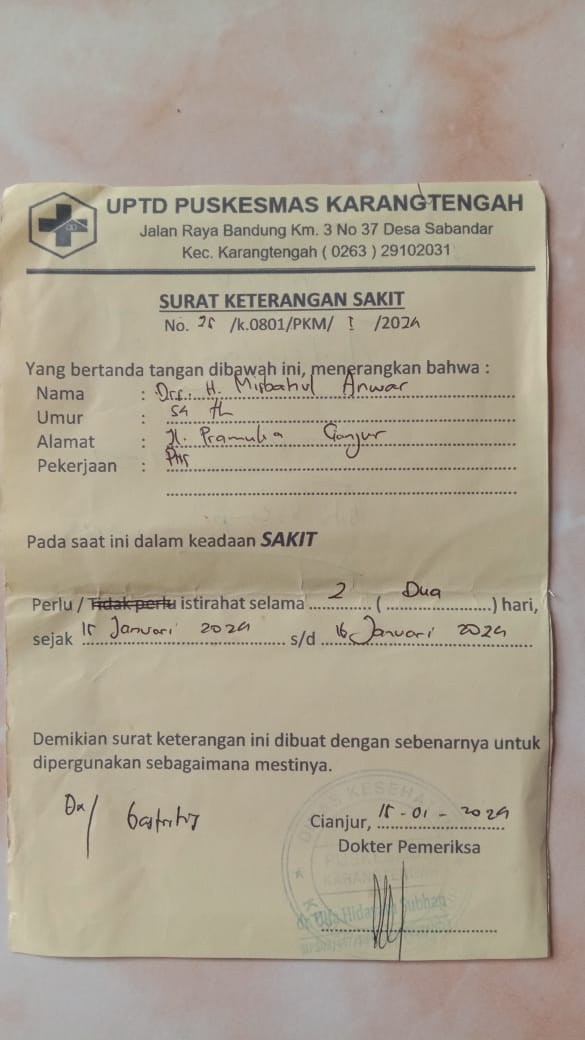 UPTD PUSKESMAS KARANGTENGAH
Jalan Raya Bandung Km. 3 No 37 Desa Sabandar
Kec. Karangtengah ( 0263 ) 29102031
SURAT KETERANGAN SAKIT
No. /k.0801/PKM/ I /2024
Yang bertanda tangan dibawah ini, menerangkan bahwa :
Nama : Drs. H. Misbahul Anwar
Umur : 54 th
Alamat : Jl. Pramuka Cianjur
Pekerjaan : PNS
Pada saat ini dalam keadaan SAKIT
Perlu / Tidak perlu istirahat selama 2 ( Dua ) hari,
sejak 15 Januari 2024 s/d 16 Januari 2024
Demikian surat keterangan ini dibuat dengan sebenarnya untuk
dipergunakan sebagaimana mestinya.
Dx/ Gastritis
Cianjur, 15-01-2024
Dokter Pemeriksa